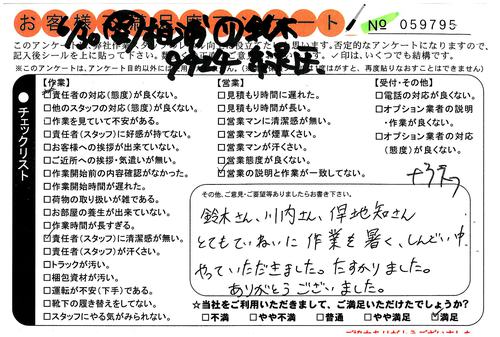 お客様満足度アンケート
№ 059795
【作業】
責任者の対応(態度)が良くない。
他のスタッフの対応(態度)が良くない。
作業を見ていて不安がある。
責任者(スタッフ)に好感が持てない。
お客様への挨拶が出来ていない。
ご近所への挨拶・気遣いが無い。
作業開始前の内容確認がなかった。
作業開始時間が遅れた。
荷物の取り扱いが雑である。
お部屋の養生が出来ていない。
作業時間が長すぎる。
責任者(スタッフ)に清潔感が無い。
責任者(スタッフ)が汗くさい。
トラックが汚い。
梱包資材が汚い。
運転が不安(下手)である。
靴下の履き替えをしてない。
スタッフにやる気がみられない。
チェックリスト
【営業】
見積もり時間に遅れた。
見積もり時間が長い。
営業マンに清潔感が無い。
営業マンが煙草くさい。
営業マンが汗くさい。
営業態度が良くない。
営業の説明と作業が一致してない。
【受付・その他】
電話の対応が良くない。
オプション業者の説明
・作業が良くない。
オプション業者の対応
(態度)が良くない。
その他、ご意見・ご要望等ありましたらお書き下さい。
鈴木さん、川内さん、伊地知さん
とてもていねいに作業を暑く、しんどい中
やっていただきました。たすかりました。
ありがとうございました。
☆当社をご利用いただきまして、ご満足いただけたでしょうか?
不満 やや不満 普通 やや満足 満足